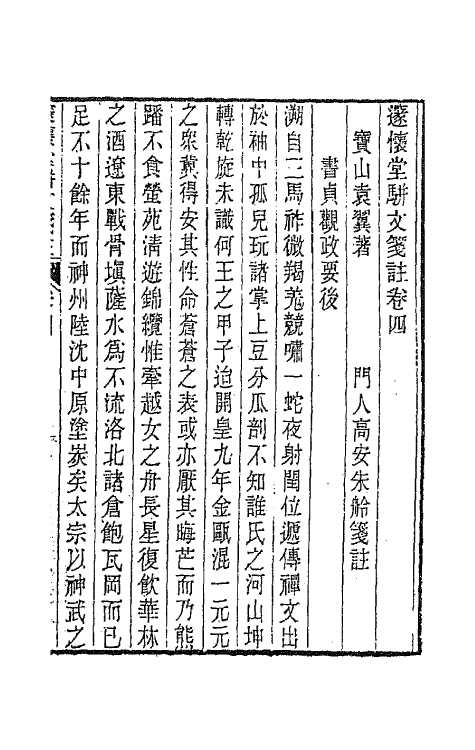 邃懷堂駢文箋註卷四
寶山袁翼著　　　門人高安朱舲箋註
書貞觀政要後
溯自二馬祚微羯羌競嘯一蛇夜射閏位遞傳禪文出
於袖中孤兒玩諸掌上豆分瓜剖不知誰氏之河山坤
轉乾旋未識何王之甲子迨開皇九年金甌混一元元
之衆冀得安其性命蒼蒼之表或亦厭其晦芒而乃熊
蹯不食螢苑清遊錦纜惟牽越女之舟長星復飮華林
之酒遼東戰骨塡薩水爲不流洛北諸倉飽瓦岡而已
足不十餘年而神州陸沈中原塗炭矣太宗以神武之